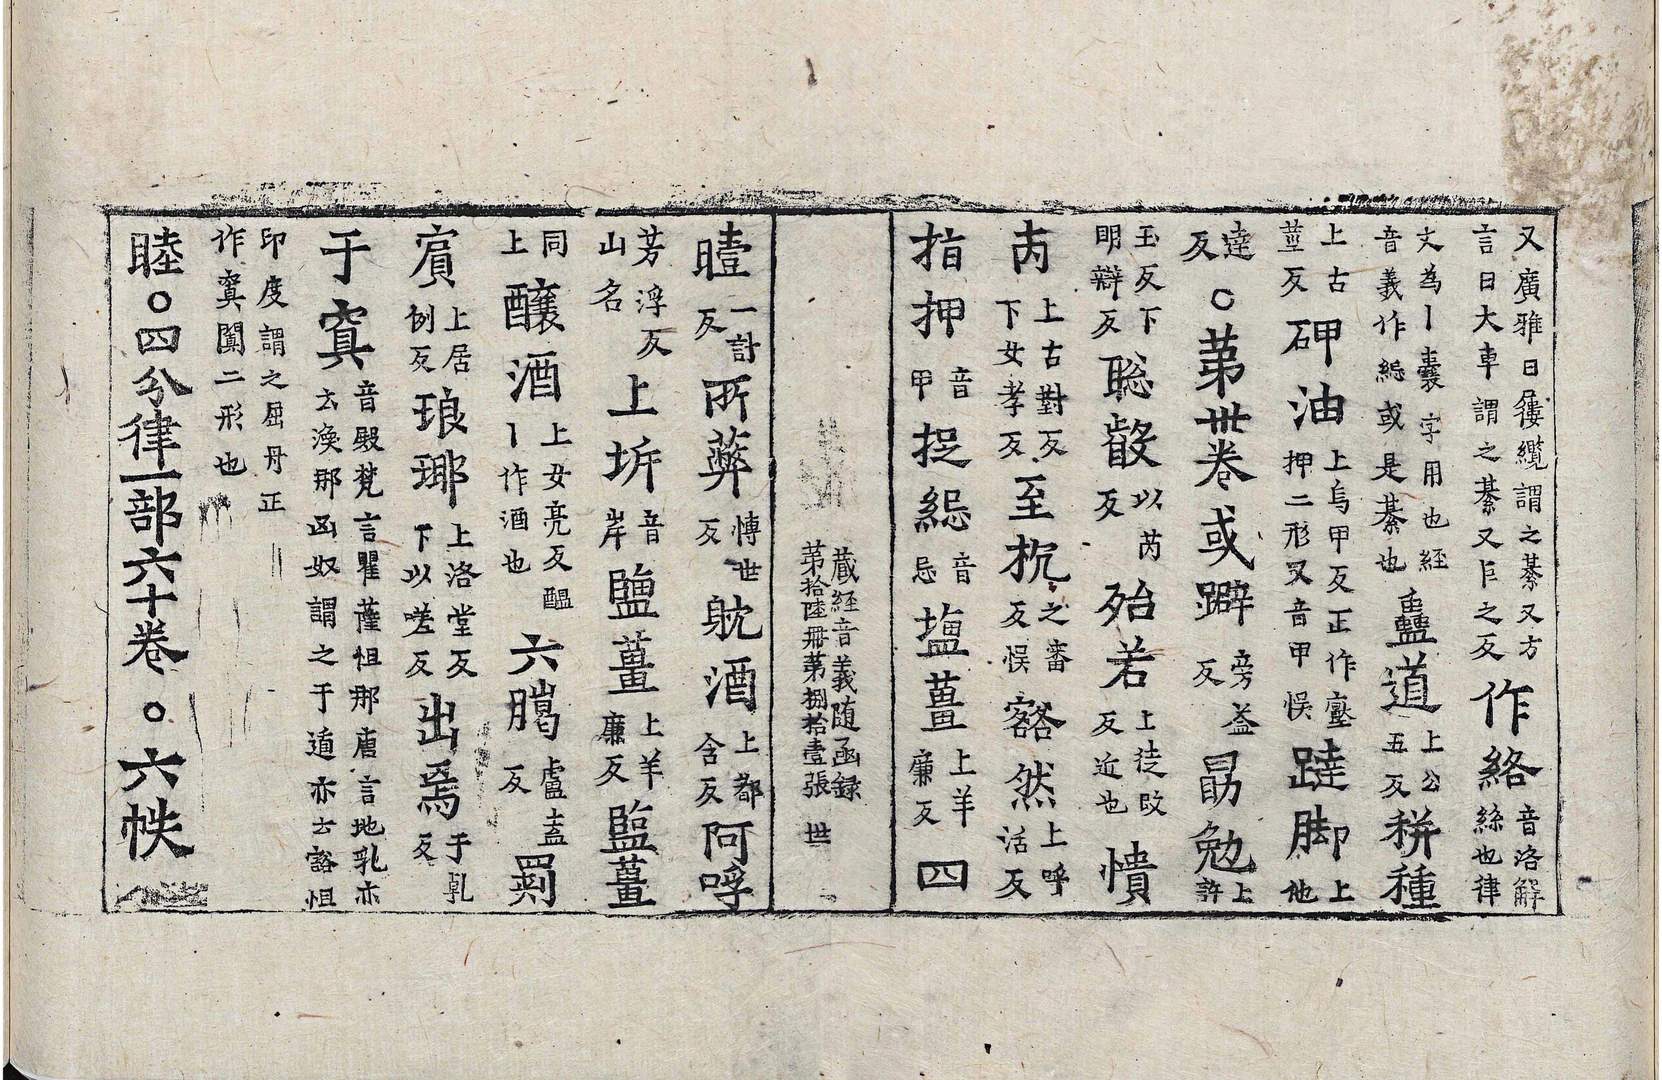 又廣雅曰𡳐纜謂之綦又方言曰大車謂之綦又巨之反作絡音洛解絲也律
文為丨囊字用也經音義作綕或是綦也蠱道上公五反秔種
上古莖反砷油上烏甲反正作壓押二形又音甲悮躂脚上他
達反○第卅卷或躃旁益反勗勉上許
玉反下明辯反聡叡以芮反殆若上徒改反近也憒
芮上古對反下女孝反至抌之審反悮豁然上呼活反
指押音甲捉綕音忌塩薑上羊廉反四
藏經音義随函録第拾陸冊第捌拾壹張 世
曀一計反所蔽慱世反躭酒上都含反阿呼
芳浮反山名上圻音岸鹽薑上羊廉反鹽薑
同上釀酒上女亮反醖丨作酒也六臈盧盍反罽
賔上居例反琅瑘上洛堂反下以嗟反出焉于乹反
于窴音殿梵言瞿薩怛那唐言地乳亦云渙那凾奴謂之于遁亦云豁怛
印度謂之屈丹正作窴闐二形也
睦○四分律一部六十卷○六帙